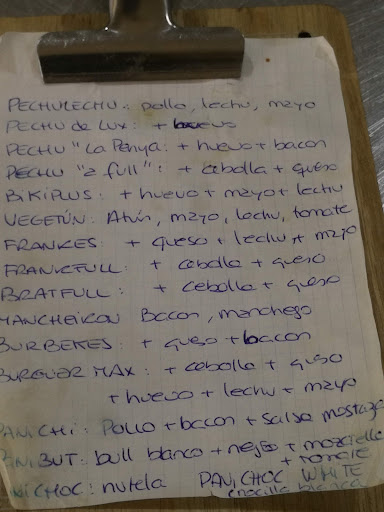 PECHULECHU: pollo, lechu, mayo
PECHU de LUX: + huevo
PECHU "La Penya: + huevo + bacon
PECHU "a full": + cebolla + queso
BIKIPLUS: + huevo + mayo + lechu
VEGETÚN: Atún, mayo, lechu, tomate
FRANKES: + queso + lechu + mayo
FRANKFULL: + cebolla + queso
BRATFULL: + cebolla + queso
MANCHEIKON Bacon, manchego
BURBEKES: + queso + bacon
BURGUER MAX: + cebolla + queso
+ huevo + lechu + mayo
PANICHI: Pollo + bacon + salsa mostaza
PANIBUT: bull blanco + negro +
+ tomate
PANICHOC: nutela PANICHOC WHITE
nocilla blanca